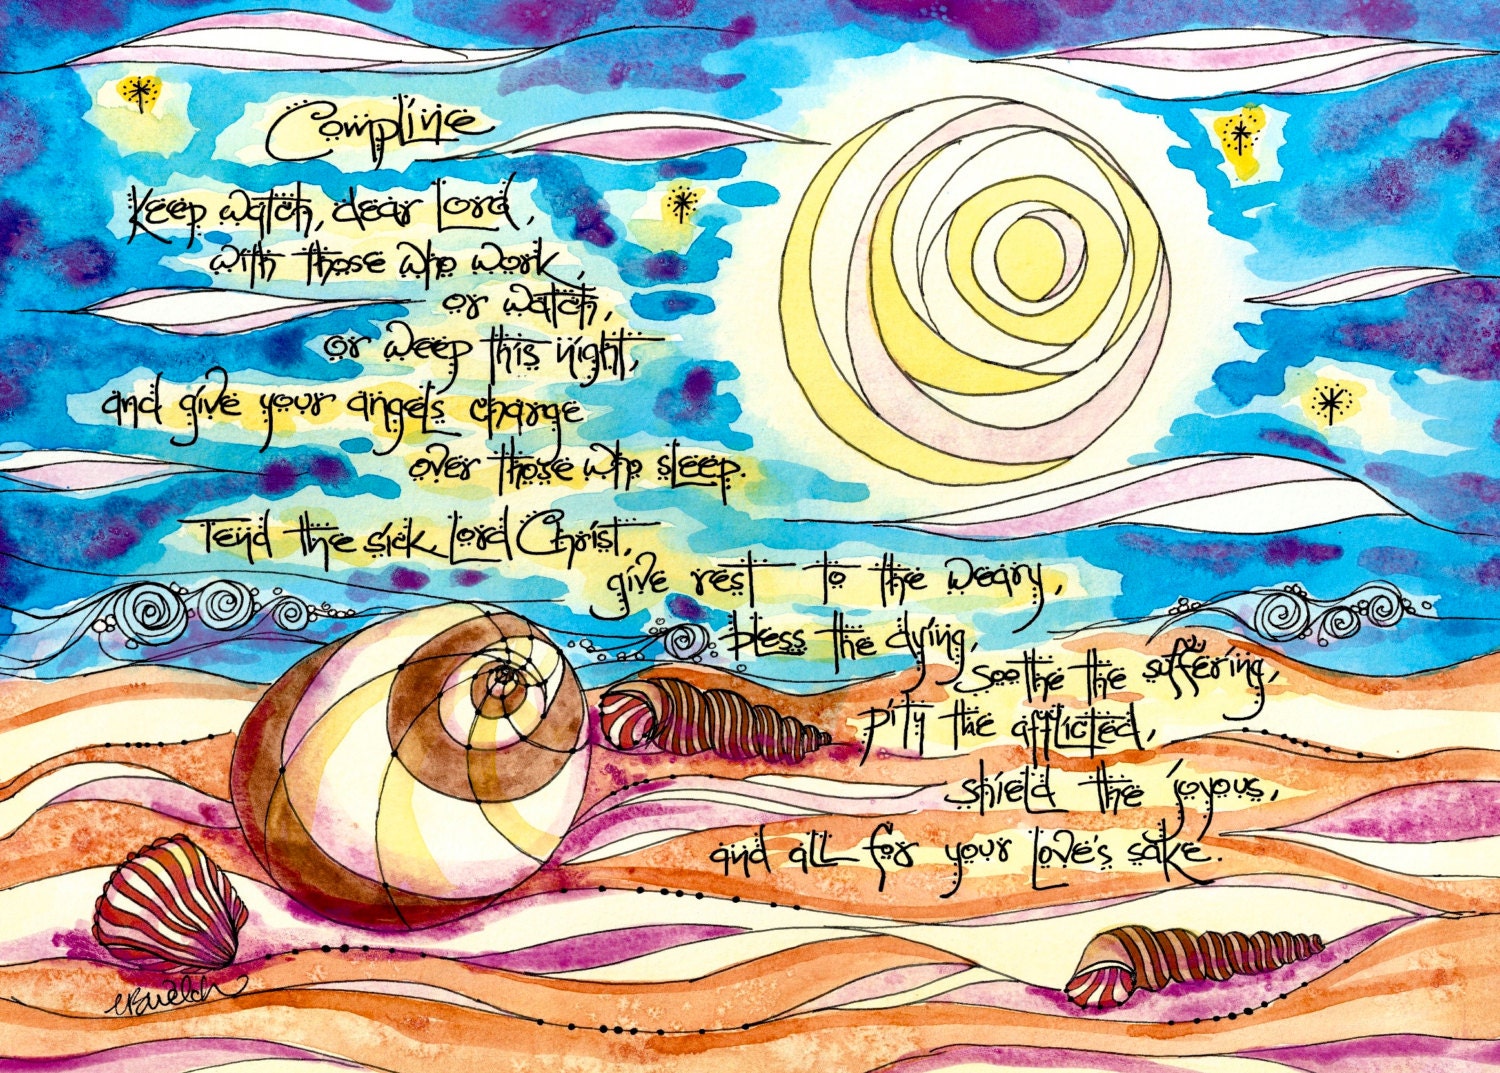 Compline
Keep watch, dear Lord,
with those who work,
or watch,
or weep this night,
and give your angels charge
over those who sleep.
Tend the sick, Lord Christ,
give rest to the weary,
bless the dying,
soothe the suffering,
pity the afflicted,
shield the joyous,
and all for your love's sake.